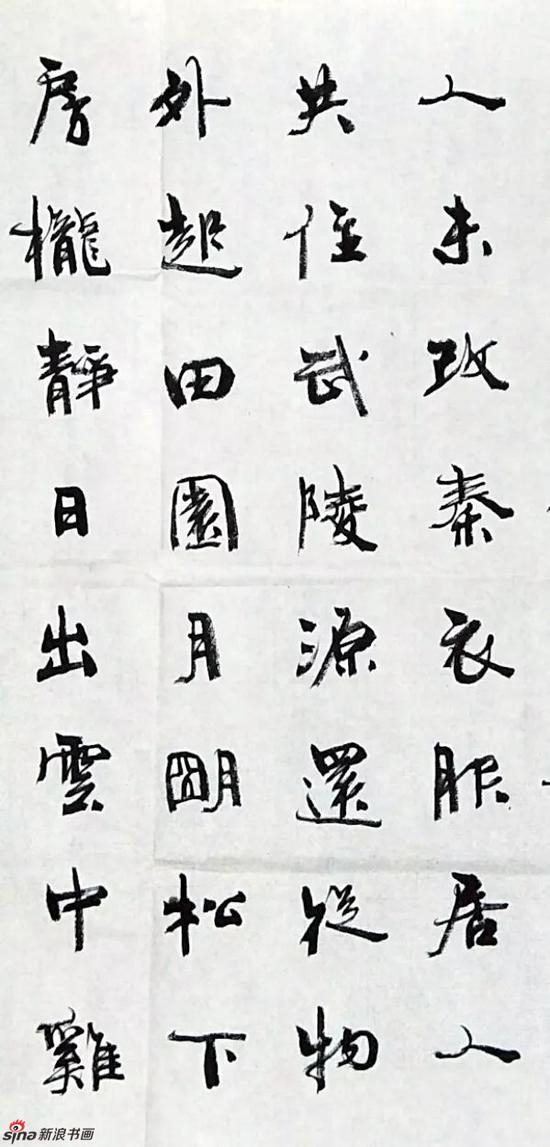 人未改秦衣服居人
共住武陵源還從物
外起田園月朙松下
房櫳靜日出雲中雞
sina新浪书画